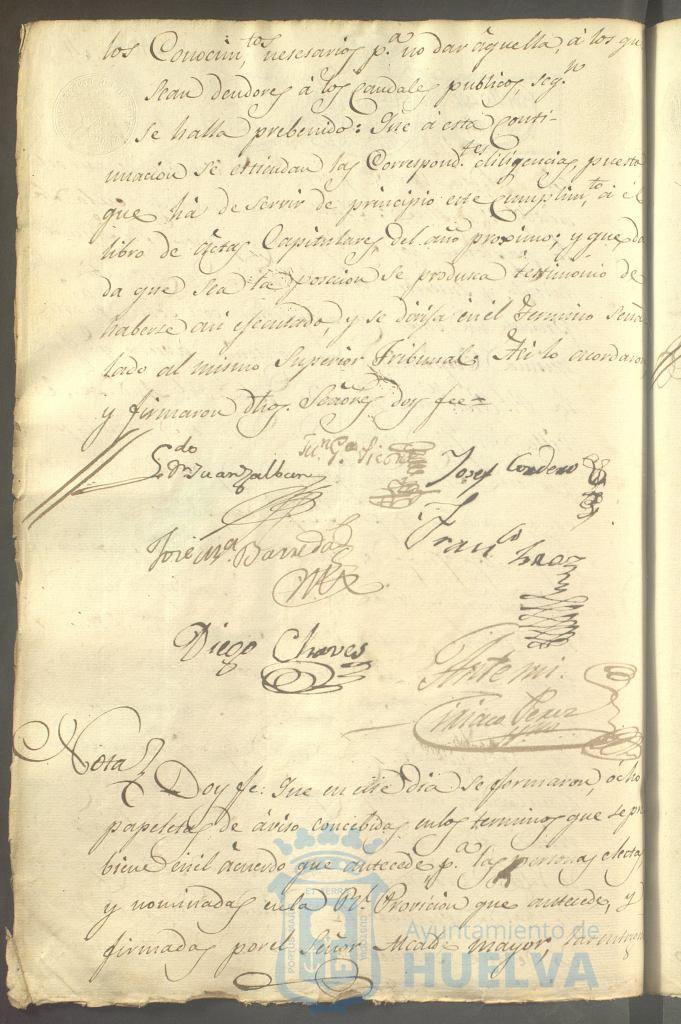 los Conocim.tos nesesarios p.a no dar aquella, á los qu
sean deudores á los caudales publicos, seg.n
se halla prebenido: Que á esta conti-
nuacion se estiendan las Correspond.tes diligencias, puesto
que há de servir de principio este Cumplim.to á el
libro de Actas Capitulares del año proximo; y que da
da que sea la posecion se produsca testimonio de
haberse asi efecutado, y se dirija en el Termino Seña
lado al mismo Superior Tribunal: Asi lo acordaron
y firmaron dhos. Señores doy fee=
L.do D.n Juan
Josef Cordero
Jose M.a Barreda
Fran.co
Diego Chaves
Ante mi.
Ciriaco Perez
Nota
Doy fe: Que en este dia se formaron, ócho
papeletas de áviso concebidas en los terminos que se pre
biene en el ácuerdo que antecede, p.a las personas electas,
y nominadas en la R.l Provicion que antecede, y
firmadas por el Señor Alcalde mayor,
Ayuntamiento de
HUELVA